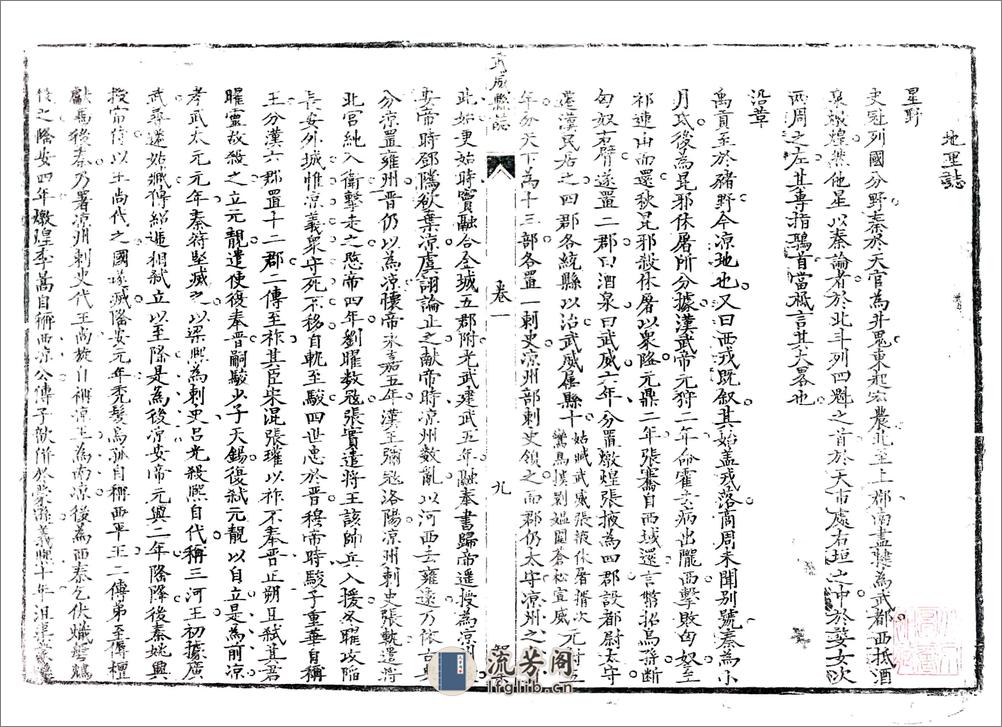 地里誌
星野
史記列國分野秦於天官為井鬼東起宏農北至上郡南盡隸為武都西抵酒
泉燉煌然他星以秦論者於北斗列四魁之首於天市處右垣之中於婺女次
兩周之左其專指鶉首當祗言其大畧也
沿革
禹貢至於豬野今涼地也又曰西戎既叙其始盖戎落商周未聞別號秦為小
月氏後為昆邪休屠所分據漢武帝元狩二年命霍去病出隴西擊敗匈奴至
祁連山而還秋昆邪殺休屠以衆降元鼎二年張騫自西域還言幣招烏孫斷
匈奴右臂遂置二郡曰酒泉曰武威六年分置燉煌張掖為四郡設都尉太守
還漢民居之四郡各統縣以治武威屬縣十姑臧武威張掖休屠揟次鸞鳥撲劉媼圍蒼松宣威元封五
年分天下為十三部各置一刺史涼州部刺史領之而郡仍太守涼州之
武威縣誌
卷一
九
此始更始時竇融合金城五郡附光武建武五年融奉書歸帝遥授為涼州
安帝時鄧隲欲棄涼虞詡論止之獻帝時涼州數亂以河西去雍遠乃依古典
分涼置雍州晋仍以為涼懷帝永嘉五年漢王彌寇洛陽涼州刺史張軌遣將
北宮純入衛擊走之愍帝四年劉曜数寇張實遣將王該帥兵入援冬曜攻陷
長安外城惟涼義衆守死不移自軌至駿四世忠於晋穆帝時駿子重華自稱
王分漢六郡置十二郡一傳至祚其臣宋混張瓘以祚不奉晋正朔且弑其君
曜靈故殺之立元靚遣使復奉晋嗣駿少子天錫復弑元靚以自立是為前涼
孝武太元元年秦符堅滅之以梁熙為刺史吕光殺熙自代稱三河王初據廣
武尋遂姑臧傳紹遞相弑立以至隆是為後涼安帝元興二年隆降後秦姚興
授帝侍以王尚代之國遂滅隆安元年秃髮烏孤自稱西平王二傳弟至傉檀
獻馬後秦乃署涼州刺史代王尚旋自稱涼王為南涼後為西秦乞伏熾磐
後之隆安四年燉煌李暠自稱西涼公傳子歆併於義熙十年沮渠
流芳阁
lfglib.cn